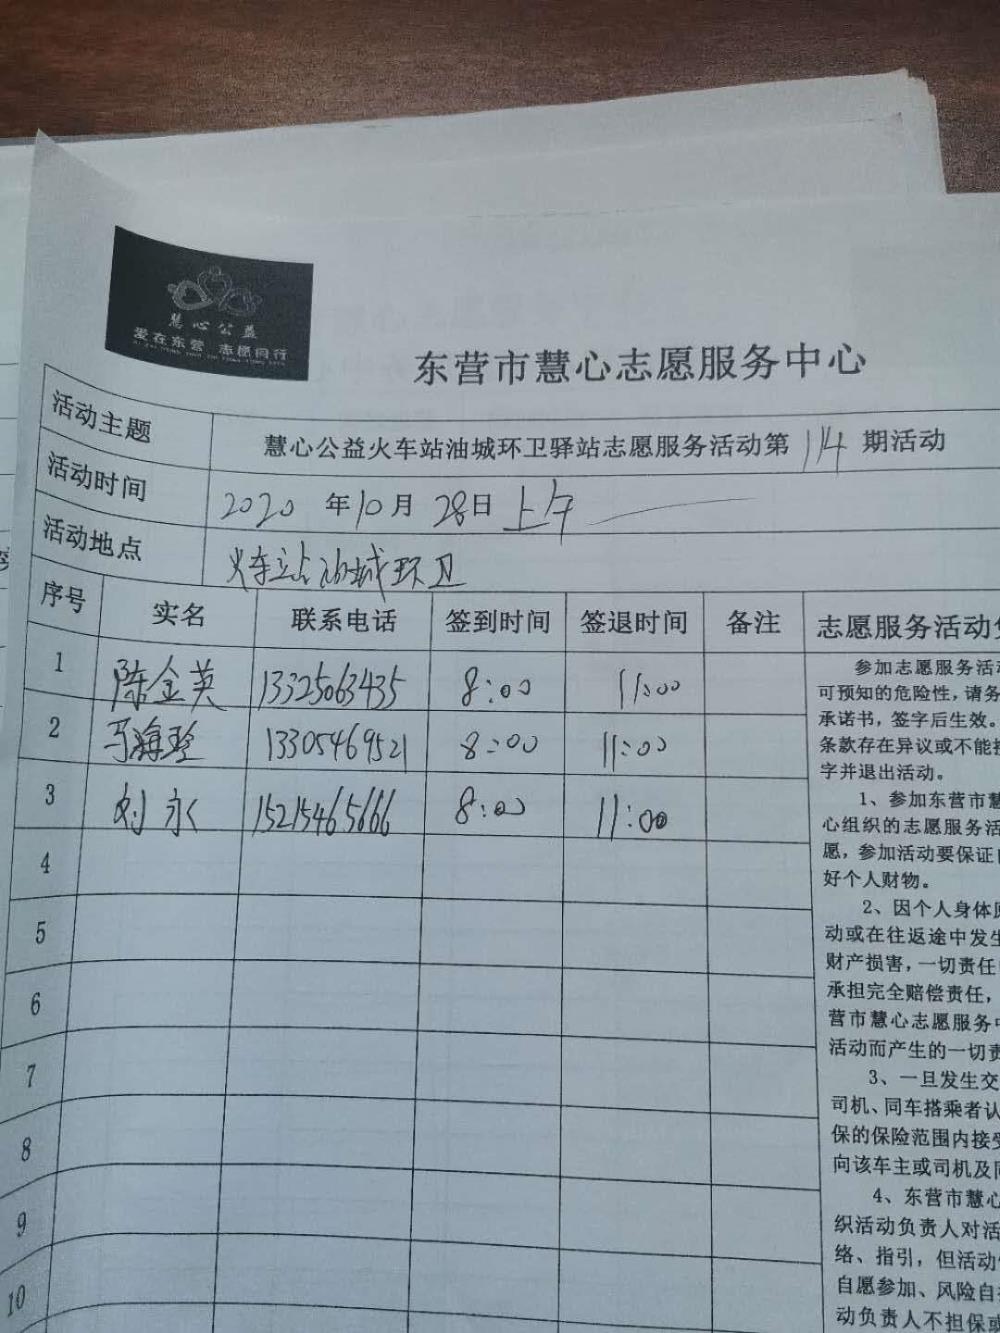 慧心公益
爱在东营 志愿同行
东营市慧心志愿服务中心
活动主题 慧心公益火车站油城环卫驿站志愿服务活动第114期活动
活动时间 2020年10月28日上午
活动地点 火车站油城环卫
序号 实名 联系电话 签到时间 签退时间 备注
1 陈金英 13325063435 8:00 11:00
2 马海玲 13305469521 8:00 11:00
3 刘永 15215465666 8:00 11:00
4
5
6
7
8
9
10
志愿服务活动
参加志愿服务活
可预知的危险性，请务
承诺书，签字后生效。
条款存在异议或不能
字并退出活动。
1、参加东营市慧
心组织的志愿服务活
愿，参加活动要保证
好个人财物。
2、因个人身体
动或在往返途中发生
财产损害，一切责任
承担完全赔偿责任，
营市慧心志愿服务
活动而产生的一切责
3、一旦发生交
司机、同车搭乘者认
保的保险范围内接受
向该车主或司机及同
4、东营市慧心
织活动负责人对活
络、指引，但活动
自愿参加、风险自
动负责人不担保或